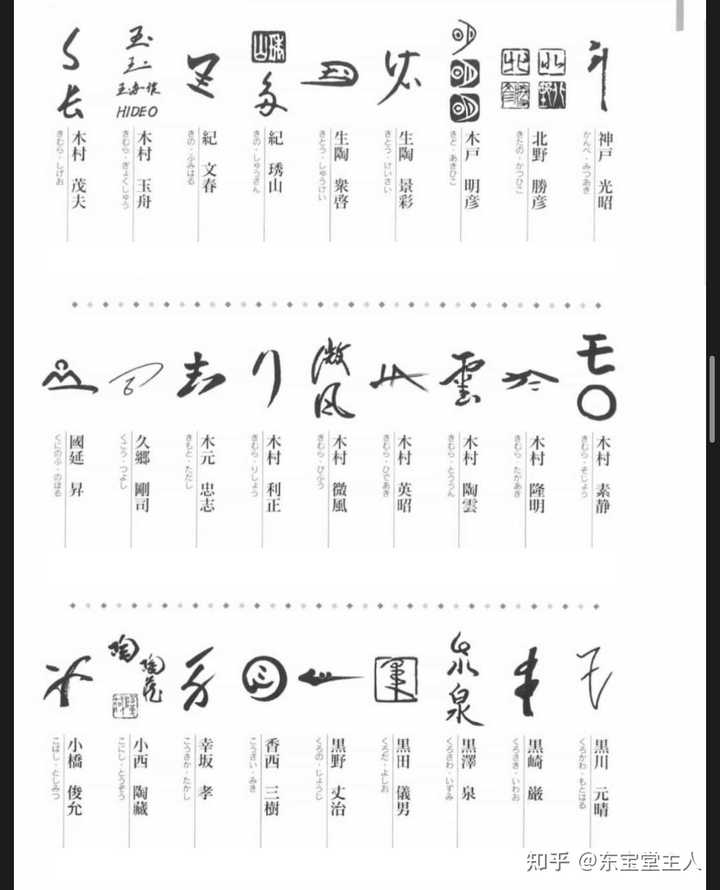 神戸 光昭
かんべ・みつあき
北野 勝彦
きたの・かつひこ
木戸 明彦
きど・あきひこ
生陶 景彩
きとう・けいさい
生陶 衆啓
きとう・しゅうけい
紀 琇山
きの・しゅうざん
紀 文春
きの・ふみはる
HIDEO
木村 玉舟
きむら・ぎょくしゅう
木村 茂夫
きむら・しげお
木村 素静
きむら・そじょう
木村 隆明
きむら・たかあき
雲
木村 陶雲
きむら・とううん
木村 英昭
きむら・ひであき
微風
木村 微風
きむら・びふう
木村 利正
きむら・りしょう
木元 忠志
きもと・ただし
久郷 剛司
くごう・つよし
國延 昇
くにのぶ・のぼる
黒川 元晴
くろかわ・もとはる
黒崎 厳
くろさき・いわお
泉
泉
黒澤 泉
くろさわ・いずみ
黒田 儀男
くろだ・よしお
黒野 丈治
くろの・じょうじ
香西 三樹
こうさい・みき
幸坂 孝
こうさか・たかし
陶
陶蔵
小西 陶藏
こにし・とうぞう
小橋 俊允
こばし・としみつ
知乎 @东宝堂主人